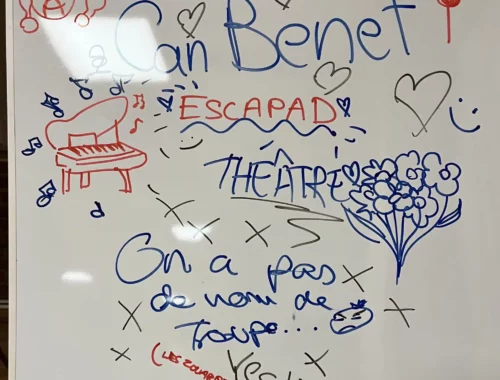 A
Can Benet
ESCAPAD
THÉÂTRE
On a pas
de nom de
Troupe...
(LES
Yes